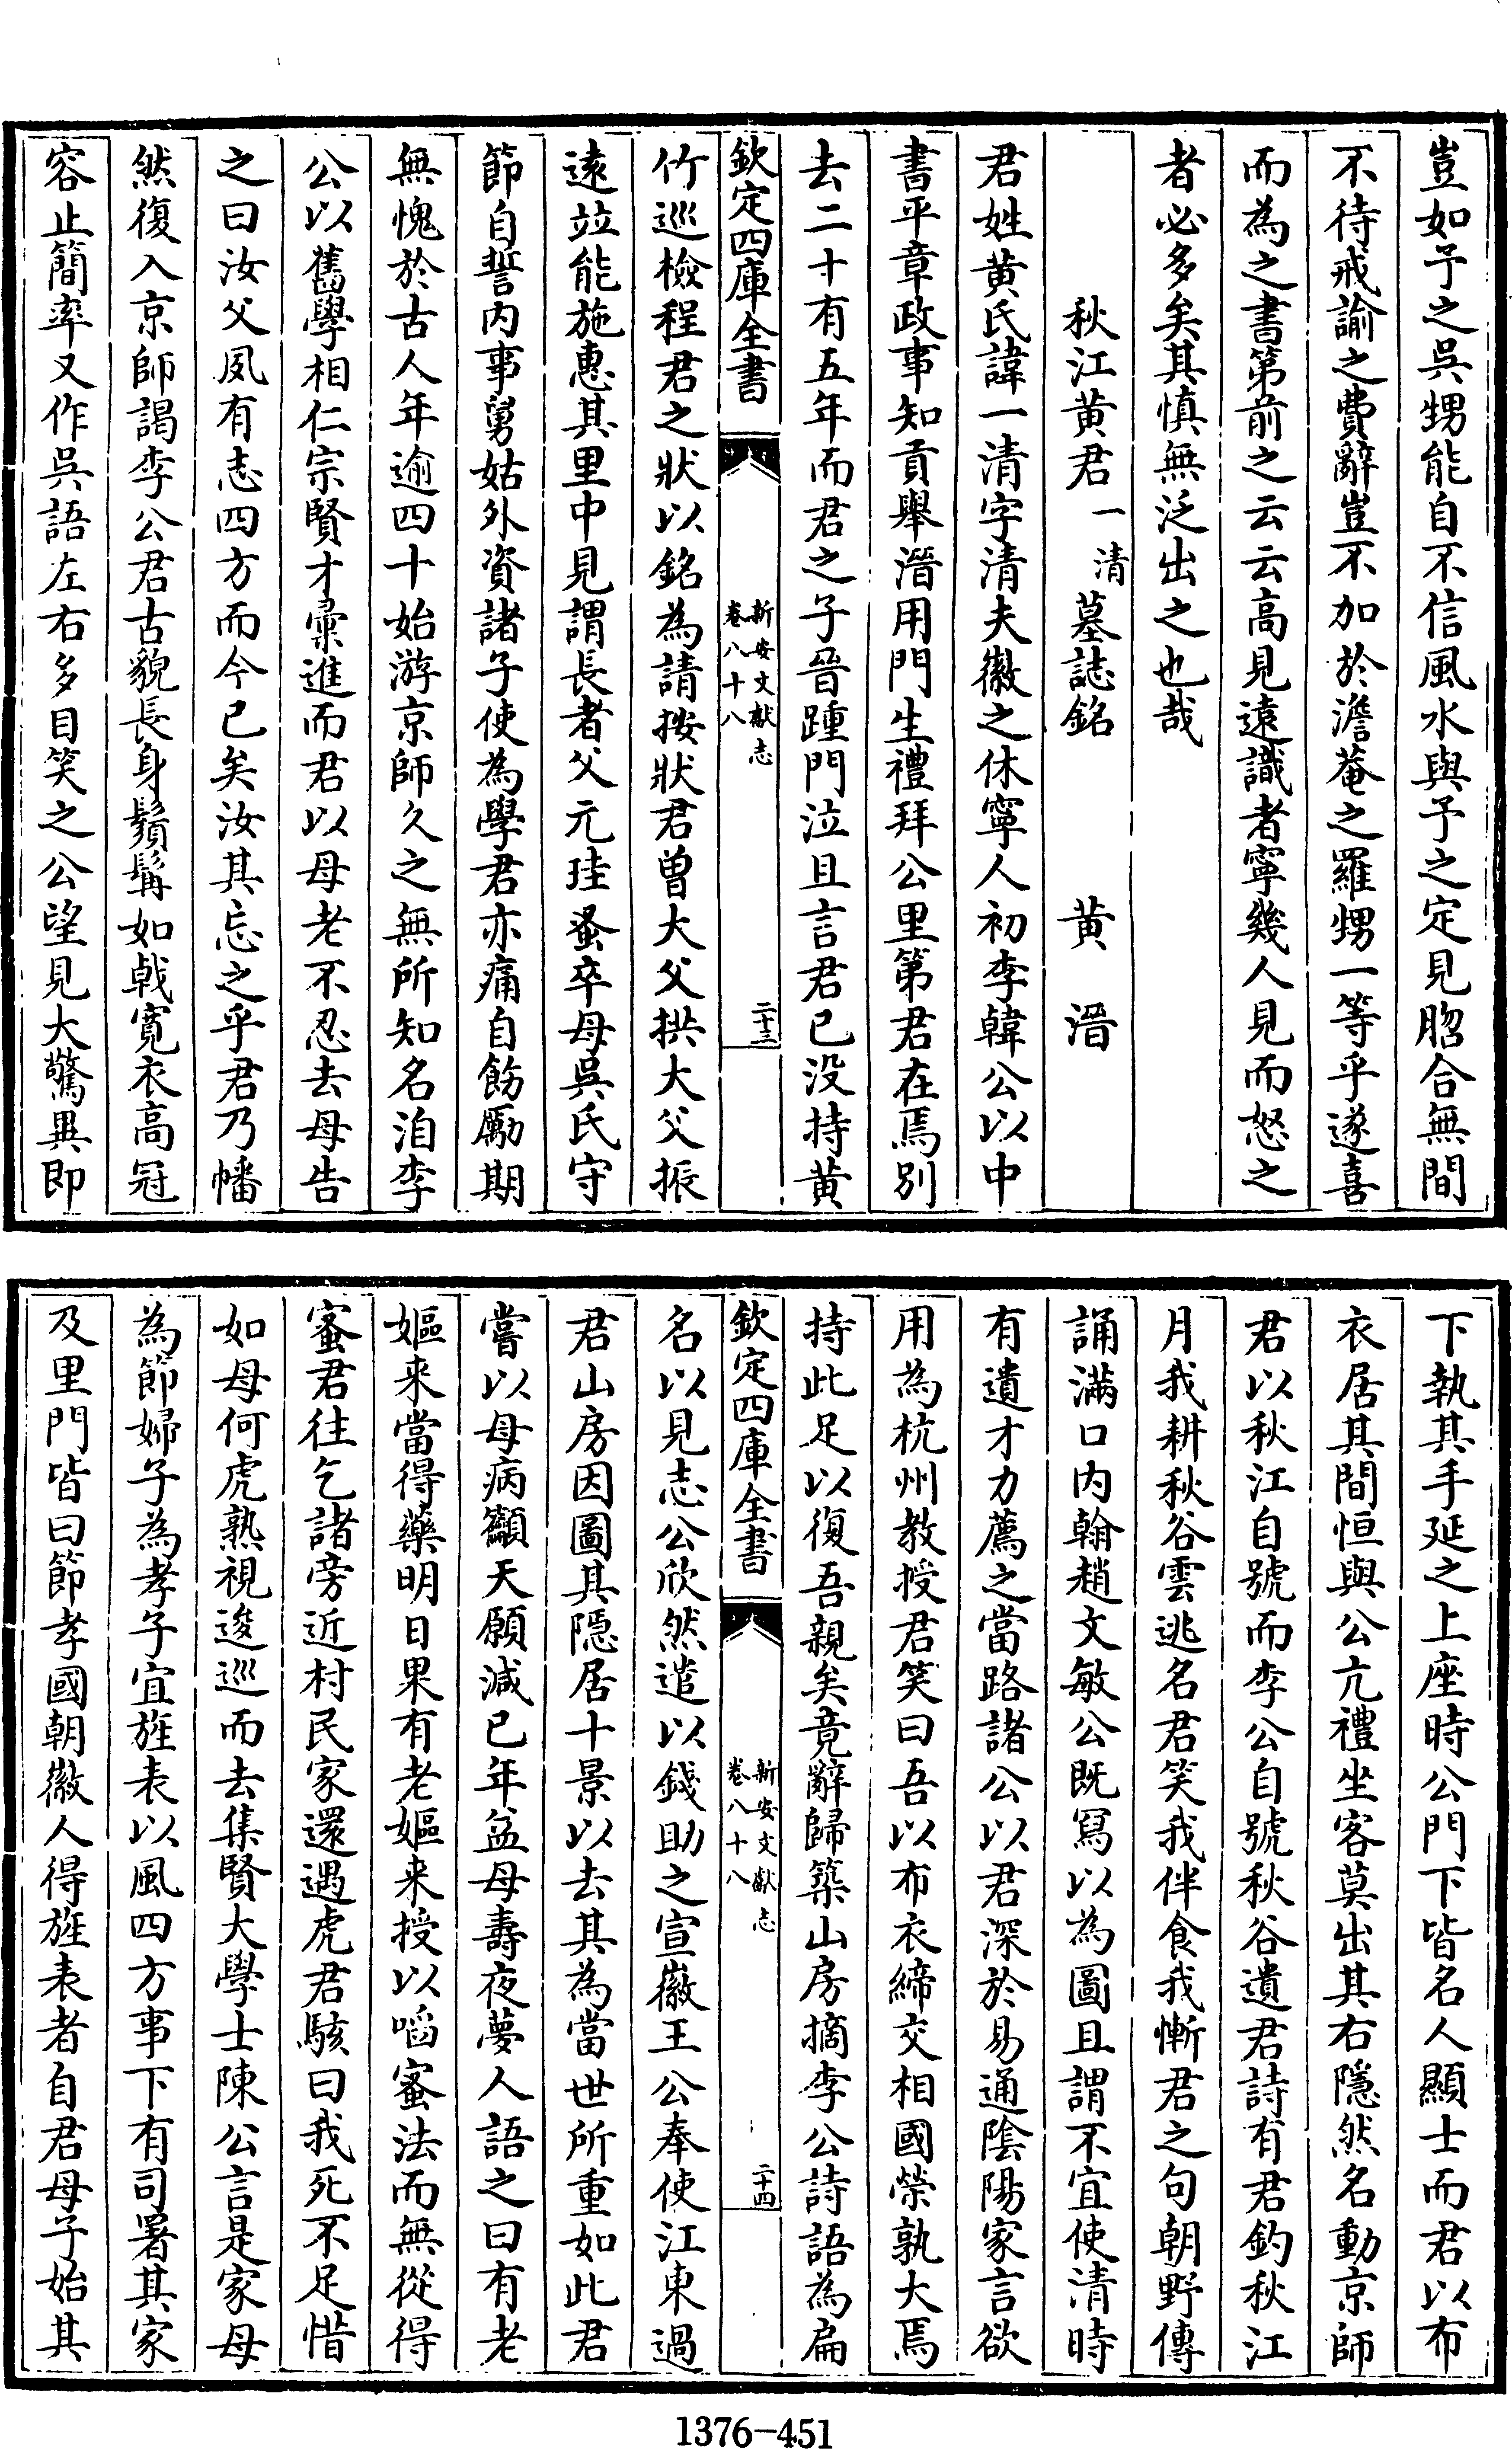 豈如予之吳甥能自不信風水與予之定見脗合無間
不待戒諭之費辭豈不加於澹菴之羅甥一等乎遂喜
而為之書第前之云云高見遠識者寧幾人見而怒之
者必多矣其慎無泛出之也哉
秋江黄君一清墓誌銘 黄溍
君姓黄氏諱一清字清夫徽之休寧人初李韓公以中
書平章政事知貢舉溍用門生禮拜公里第君在焉别
去二十有五年而君之子晉踵門泣且言君已没持黄
欽定四庫全書
新安文獻志
卷八十八
二十三
竹巡檢程君之狀以銘為請按狀君曾大父拱大父振
逺竝能施惠其里中見謂長者父元珪蚤卒母吳氏守
節自誓内事舅姑外資諸子使為學君亦痛自飭勵期
無愧於古人年逾四十始游京師久之無所知名洎李
公以舊學相仁宗賢才彚進而君以母老不忍去母告
之曰汝父夙有志四方而今已矣汝其忘之乎君乃幡
然復入京師謁李公君古貌長身鬚髯如戟寛衣高冠
容止簡率又作吳語左右多目笑之公望見大驚異即
下執其手延之上座時公門下皆名人顯士而君以布
衣居其間恒與公亢禮坐客莫出其右隱然名動京師
君以秋江自號而李公自號秋谷遺君詩有君釣秋江
月我耕秋谷雲逃名君笑我伴食我慚君之句朝野傳
誦滿口内翰趙文敏公既寫以為圖且謂不宜使清時
有遺才力薦之當路諸公以君深於易通陰陽家言欲
用為杭州教授君笑曰吾以布衣締交相國榮孰大焉
持此足以復吾親矣竟辭歸築山房摘李公詩語為扁
欽定四庫全書
新安文獻志
卷八十八
二十四
名以見志公欣然遣以錢助之宣徽王公奉使江東過
君山房因圖其隱居十景以去其為當世所重如此君
嘗以母病籲天願減已年益母壽夜夢人語之曰有老
嫗来當得藥明日果有老嫗来授以啗蜜法而無從得
蜜君往乞諸旁近村民家還遇虎君駭曰我死不足惜
如母何虎熟視逡巡而去集賢大學士陳公言是家母
為節婦子為孝子宜旌表以風四方事下有司署其家
及里門皆曰節孝國朝徽人得旌表者自君母子始其
1376-451